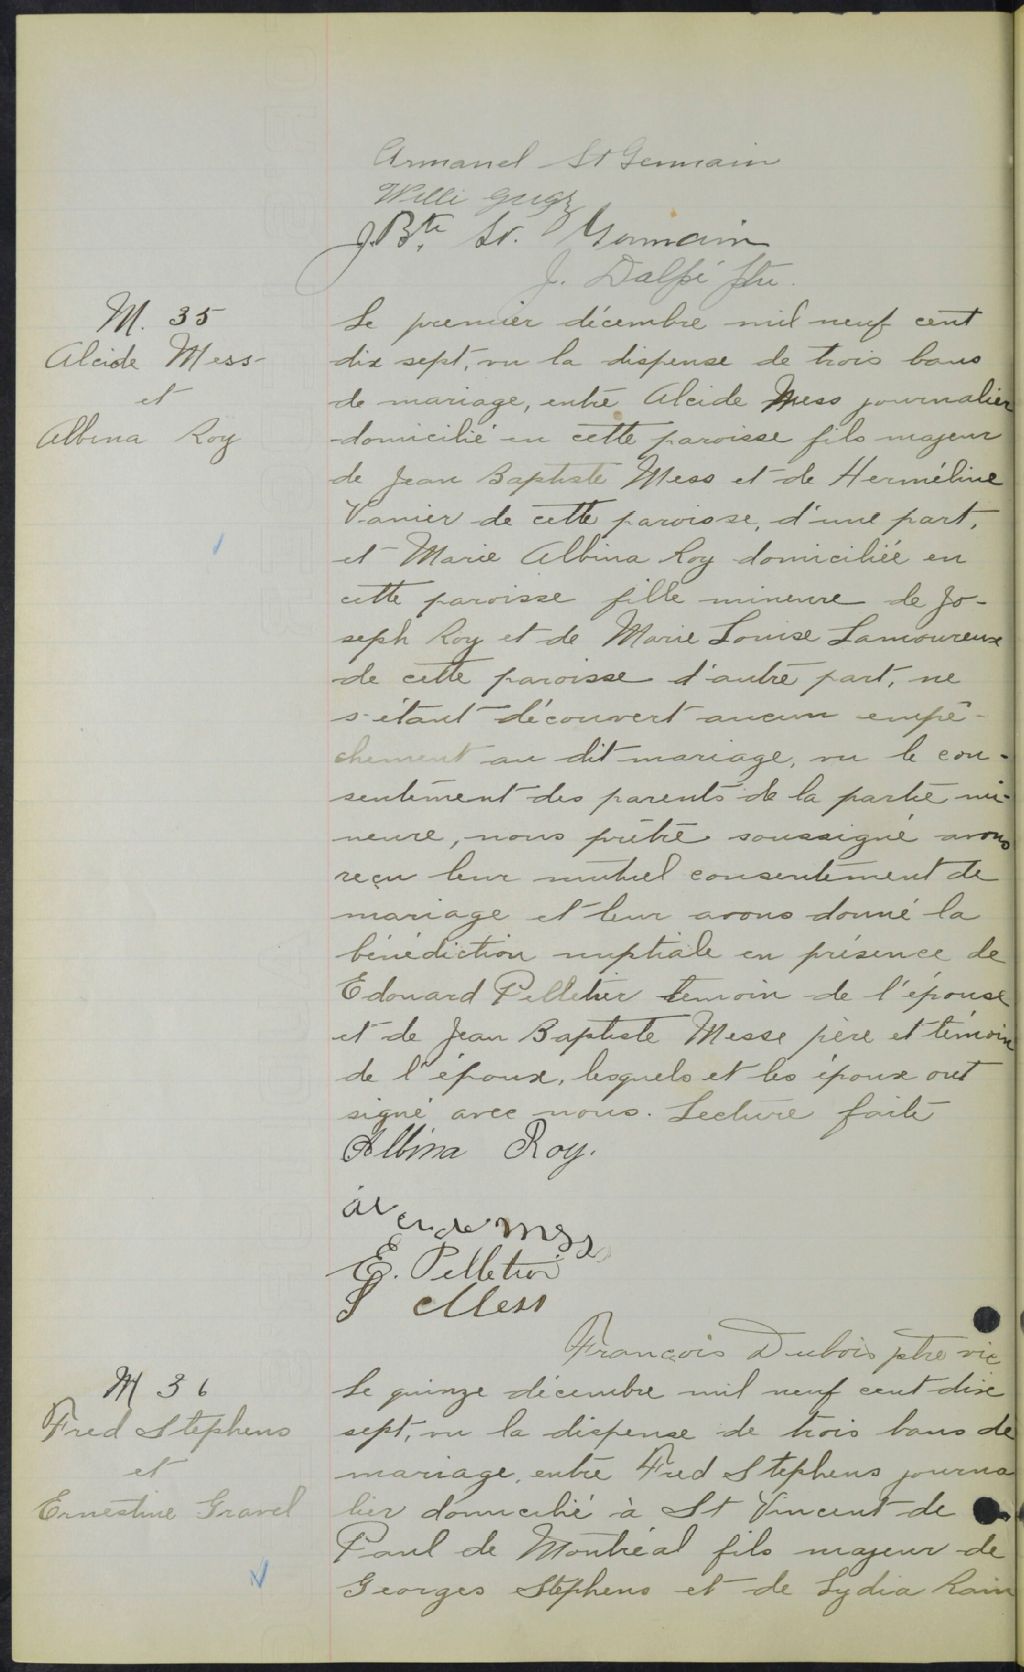 Armand St Germain
Willi
J. Bte St. Germain
J. Dalpé Ptre.
M. 35
Alcide Mess
et
Albina Roy
Le premier décembre mil neuf cent
dix sept, vu la dispense de trois bans
de mariage, entre Alcide Mess journalier
domicilié en cette paroisse fils majeur
de Jean Baptiste Mess et de Herméline
Vanier de cette paroisse, d'une part,
et Marie Albina Roy domiciliée en
cette paroisse fille mineure de Jo-
seph Roy et de Marie Louise Lamoureux
de cette paroisse d'autre part, ne
s'étant découvert aucun empê-
chement au dit mariage, vu le con-
sentement des parents de la partie mi-
neure, nous prêtre soussigné avons
reçu leur mutuel consentement de
mariage et leur avons donné la
bénédiction nuptiale en présence de
Edouard Pelletier temoin de l'épouse
et de Jean Baptiste Messe père et témoin
de l'époux, lesquels et les époux ont
signé avec nous. Lecture faite
Albina Roy.
Alcide Mess
E. Pelletier
J Mess
François Dubois ptre vic
M 36
Fred Stephens
et
Ernestine Gravel
Le quinze décembre mil neuf cent dix
sept, vu la dispense de trois bans de
mariage, entre Fred Stephens journa
lier domicilié à St Vincent de
Paul de Montréal fils majeur de
Georges Stephens et de Lydia Rain